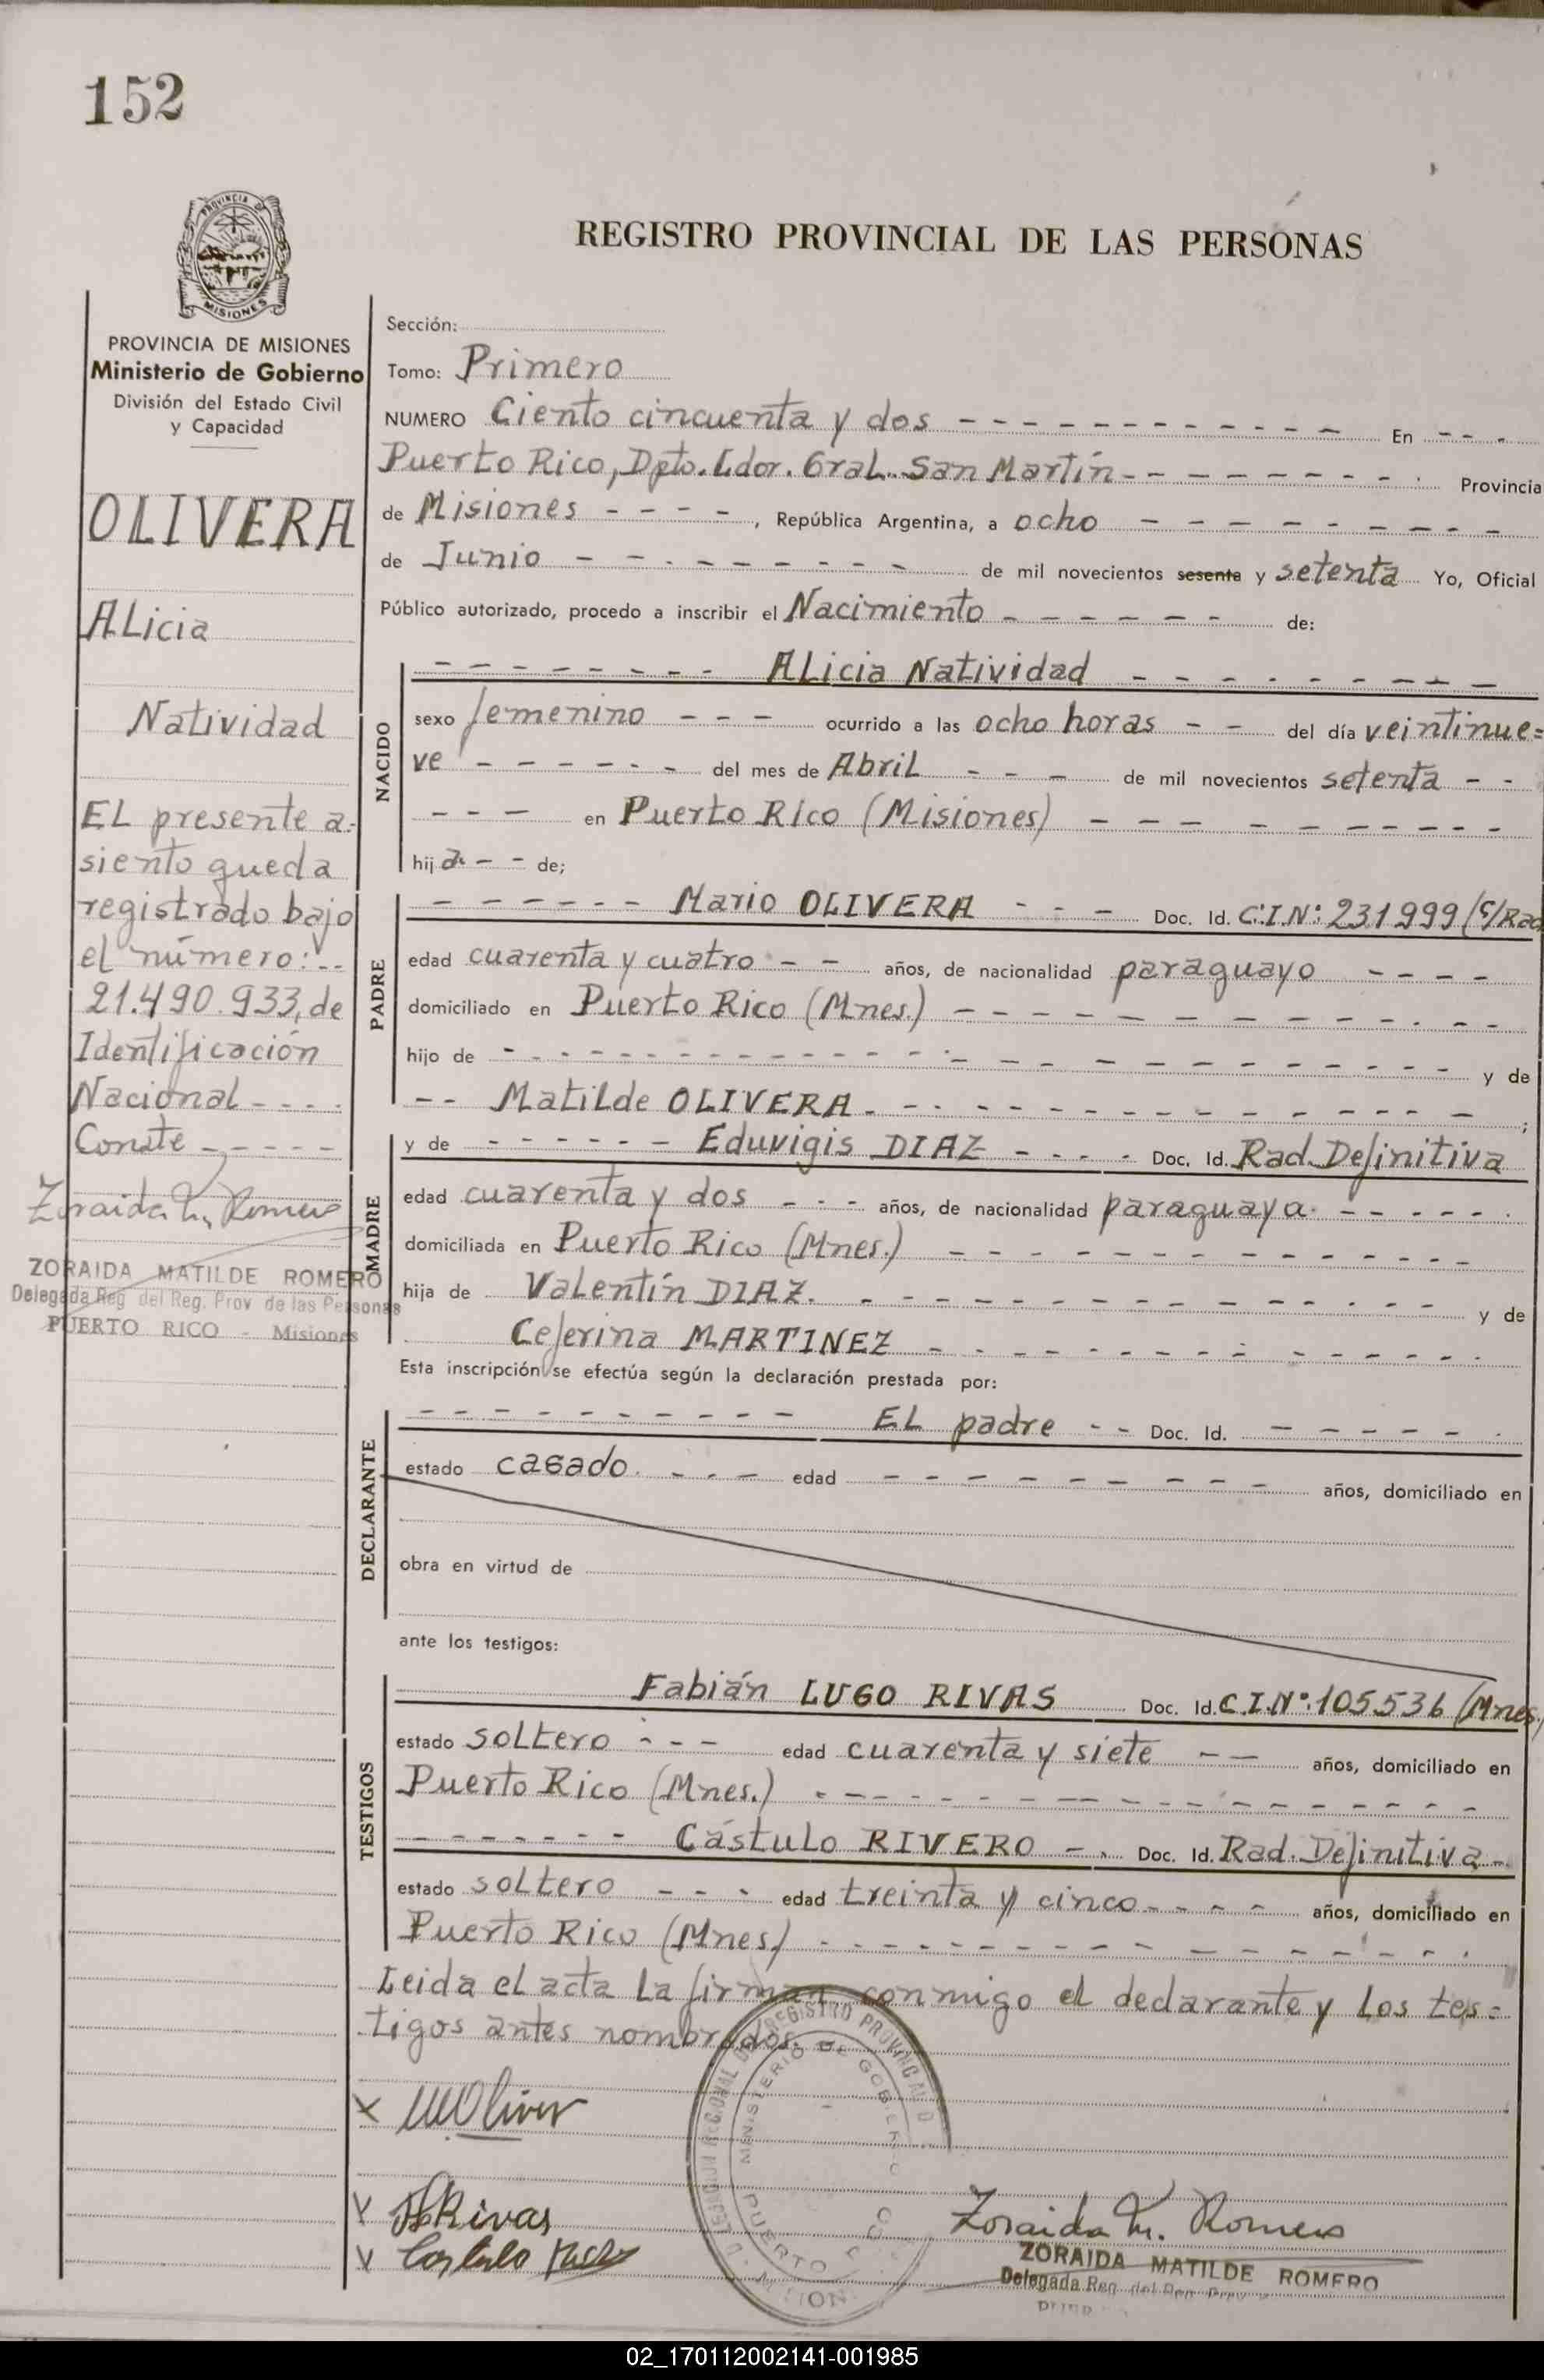 152
PROVINCIA DE
MISIONES
REGISTRO PROVINCIAL DE LAS PERSONAS
PROVINCIA DE MISIONES
Ministerio de Gobierno
División del Estado Civil
y Capacidad
OLIVERA
ALicia
Natividad
EL presente a-
siento queda
registrado bajo
el número:--
21.490.933, de
Identificación
Nacional - - - -
Conste - - - - -
Zoraida M. Romero
ZORAIDA MATILDE ROMERO
Delegada Reg del Reg. Prov de las Personas
PUERTO RICO - Misiones
Sección:
Tomo: Primero
NUMERO Ciento cincuenta y dos - - - - - - - - - - - En - - -
Puerto Rico, Dpto. Ldor. Gral. San Martín - - - - - - - - Provincia
de Misiones - - - - , República Argentina, a ocho - - - - - - - - -
de Junio - - - - - - - - de mil novecientos sesenta y setenta Yo, Oficial
Público autorizado, procedo a inscribir el Nacimiento - - - - - - de:
NACIDO
- - - - - - - - ALicia Natividad - - - - - - - - -
sexo femenino - - - ocurrido a las ocho horas - - del día veintinue=
ve - - - - - - del mes de Abril - - - de mil novecientos setenta - -
- - - en Puerto Rico (Misiones) - - - - - - - - -
hij a - - de;
PADRE
- - - - - - Mario OLIVERA - - - Doc. Id. C.I.N°: 231999 (S/Rad
edad cuarenta y cuatro - - años, de nacionalidad paraguayo - - - -
domiciliado en Puerto Rico (Mnes.) - - - - - - - - - - - -
hijo de - - - - - - - - - - - - - - - - - - - - y de
-- Matilde OLIVERA. - - - - - - - - - - - - - ;
MADRE
y de - - - - - - Eduvigis DIAZ - - - - Doc. Id. Rad. Definitiva
edad cuarenta y dos - - - años, de nacionalidad paraguaya. - - - - -
domiciliada en Puerto Rico (Mnes.) - - - - - - - - - - - -
hija de Valentín DIAZ. - - - - - - - - - - - - - y de
Ceferina MARTINEZ - - - - - - - - - - - - -
Esta inscripción se efectúa según la declaración prestada por:
DECLARANTE
- - - - - - - - - - EL padre - - Doc. Id. - - - - -
estado casado. - - - edad - - - - - - - - - años, domiciliado en
obra en virtud de
ante los testigos:
TESTIGOS
Fabián LUGO RIVAS Doc. Id. C.I.N°: 105.536 (Mnes.)
estado soltero - - - edad cuarenta y siete - - años, domiciliado en
Puerto Rico (Mnes.) - - - - - - - - - - - - - - -
- - - - - - - Cástulo RIVERO - . Doc. Id. Rad. Definitiva -
estado soltero - - - edad treinta y cinco - - - - años, domiciliado en
Puerto Rico (Mnes) - - - - - - - - - - - - - - -
Leida el acta la firman conmigo el declarante y los tes=
tigos antes nombrados.
REGISTRO PROVINCIAL D
MINISTERIO DE GOBIERNO
PUERTO
x MOliver
x Rivas
x Castulo
Zoraida M. Romero
ZORAIDA MATILDE ROMERO
Delegada Reg. del Reg. Prov